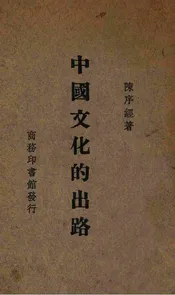 陳序經著
中國文化的出路
商務印書館發行